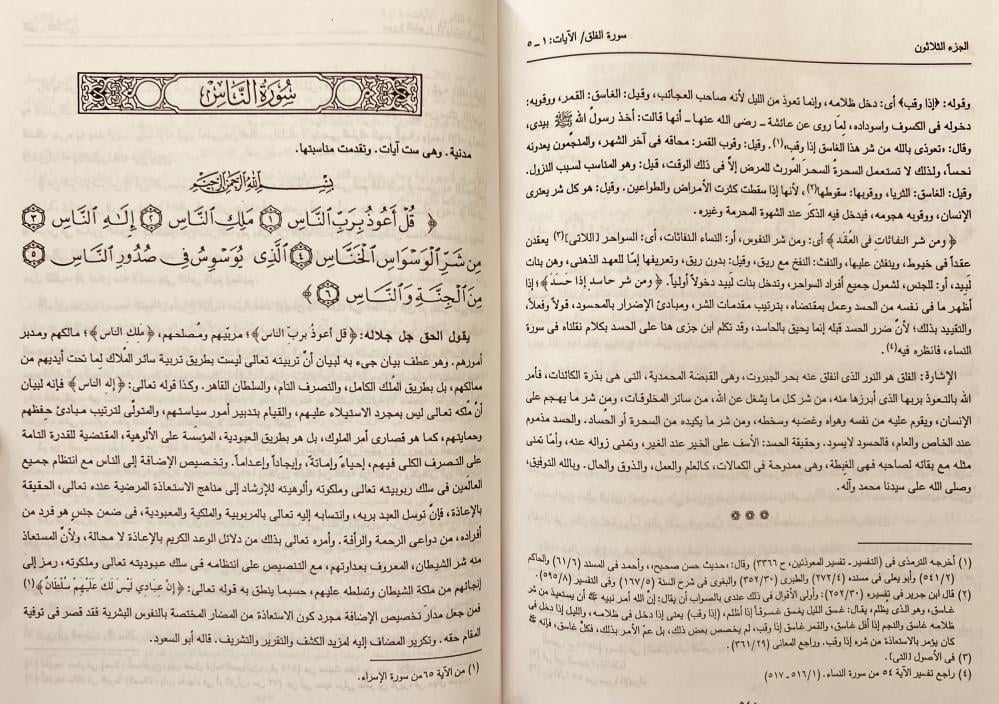 الجزء الثلاثون
سورة الفلق/ الآيات: ١ ـ ٥
وقوله: ﴿إذا وقب﴾ أى: دخل ظلامه، وإنما تعوذ من الليل لأنه صاحب العجائب، وقيل: الغاسق: القمر، ووقوبه:
دخوله فى الكسوف واسوداده، لمَا روى عن عائشة ـ رضى الله عنها ـ أنها قالت: أخذ رسولُ الله ﷺ بيدى،
وقال: «تعوذى بالله من شر هذا الغاسق إذا وقب»(١). وقيل: وقوب القمر: محاقه فى آخر الشهر، والمنجُمون يعدونه
نحساً، ولذلك لا تستعمل السحرة السحر المُورث للمرض إلاَّ فى ذلك الوقت، قيل: وهو المناسب لسبب النزول.
وقيل: الغاسق: الثريا، ووقوبها: سقوطها(٢)، لأنها إذا سقطت كثرت الأمراض والطواعين. وقيل: هو كل شر يعترى
الإنسان، ووقوبه هجومه، فيدخل فيه الذكَر عند الشهوة المحرمة وغيره.
﴿ومن شر النفاثات فى العُقَد﴾ أى: ومن شر النفوس، أو: النساء النفاثات، أى: السواحر [اللاتى](٣) يعقدن
عقداً فى خيوط، وينفثن عليها، والنفث: النفخ مع ريق، وقيل: بدون ريق، وتعريفها إمَّا للعهد الذهنى، وهن بنات
لَبِيد، أو: للجنس، لشمول جميع أفراد السواحر، وتدخل بنات لبيد دخولاً أولياً. ﴿ومن شر حاسد إذا حَسَدَ﴾؛ إذا
أظهر ما فى نفسه من الحسد وعمل بمقتضاه، بترتيب مقدمات الشر، ومبادئ الإضرار بالمحسود، قولاً وفعلاً،
والتقييد بذلك؛ لأنَّ ضرر الحسد قبله إنما يحيق بالحاسد، وقد تكلم ابن جزى هنا على الحسد بكلام نقلناه فى سورة
النساء، فانظره فيه(٤).
الإشارة: الفلق هو النور الذى انفلق عنه بحر الجبروت، وهى القبضة المحمدية، التى هى بذرة الكائنات، فأمر
الله بالتعوذ بربها الذى أبرزها منه، من شر كل ما يشغل عن الله، من سائر المخلوقات، ومن شر ما يهجم على
الإنسان، ويقوم عليه من نفسه وهواه وغضبه وسخطه، ومن شر ما يكيده من السحرة أو الحُساد. والحسد مذموم
عند الخاص والعام، فالحسود لا يسود. وحقيقة الحسد: الأسف على الخير عند الغير، وتمنى زواله عنه، وأمَّا تمنى
مثله مع بقائه لصاحبه فهى الغبطة، وهى ممدوحة فى الكمالات، كالعلم والعمل، والذوق والحال. وبالله التوفيق،
وصلى الله على سيدنا محمد وآله.
(١) أخرجه الترمذى فى (التفسير ـ تفسير المعوذتين، ح ٣٣٦٦) وقال: «حديث حسن صحيح»، وأحمد فى المسند (٦١/٦) والحاكم
(٥٤١/٢) وأبو يعلى فى مسنده (٢٧٢/٤) والطبرى (٣٥٢/٣٠) والبغوى فى شرح السنة (١٦٧/٥) وفى التفسير (٥٩٥/٨).
(٢) قال ابن جرير فى تفسيره (٢٥٢/٣٠): وأولى الأقوال فى ذلك عندى بالصواب أن يقال: إن الله أمر نبيه ﷺ أن يستعيذ من شر
غاسق، وهو الذى يظلم، يقال: غسق الليل يغسق غسوقاً إذا أظلم، (إذا وقب) يعنى إذا دخل فى ظلامه، والليل إذا دخل فى
ظلامه غاسق والنجم إذا أفل غاسق، والقمر غاسق إذا وقب، لم يخصص بعض ذلك، بل عمّ الأمر بذلك، فكلّ غاسق، فإنه ﷺ
كان يؤمر بالاستعاذة من شره إذا وقب. وراجع المعانى (٣٦١/٢٩).
(٣) فى الأصول [التى].
(٤) راجع تفسير الآية ٥٤ من سورة النساء. (٥١٦/١ ـ ٥١٧)
سُورَةُ النَّاسِ
مدنية. وهى ست آيات. وتقدمت مناسبتها.
بِسْمِ اللَّهِ الرَّحْمَنِ الرَّحِيمِ
﴿ قُلْ أَعُوذُ بِرَبِّ النَّاسِ ١ مَلِكِ النَّاسِ ٢ إِلَٰهِ النَّاسِ ٣
مِن شَرِّ الْوَسْوَاسِ الْخَنَّاسِ ٤ الَّذِي يُوَسْوِسُ فِي صُدُورِ النَّاسِ ٥
مِنَ الْجِنَّةِ وَالنَّاسِ ٦ ﴾
يقول الحق جل جلاله: ﴿قل أعوذُ بربّ الناس﴾؛ مربّيهم ومُصلحهم، ﴿مَلِكِ الناس﴾؛ مالكهم ومدبر
أمورهم. وهو عطف بيان جىء به لبيان أنَّ تربيته تعالى ليست بطريق تربية سائر المُلاك لِما تحت أيديهم من
ممالكهم، بل بطريق المُلك الكامل، والتصرف التام، والسلطان القاهر. وكذا قوله تعالى: ﴿إِله الناس﴾ فإنه لبيان
أنَّ مُلكه تعالى ليس بمجرد الاستيلاء عليهم، والقيام بتدبير أمور سياستهم، والمتولِّى لترتيب مبادئ حِفظهم
وحمايتهم، كما هو قصارى أمر الملوك، بل هو بطريق العبودية، المؤسسَة على الألوهية، المقتضية للقدرة التامة
على التصرف الكلى فيهم، إحياءً وإماتةً، وإيجاداً وإعداماً. وتخصيص الإضافة إلى الناس مع انتظام جميع
العالمين فى سلك ربوبيته تعالى وملكوته وألوهيته للإرشاد إلى مناهج الاستعاذة المرضية عنده تعالى، الحقيقة
بالإعاذة، فإنَّ توسل العبد بربه، وانتسابه إليه تعالى بالمربوبية والملكية والمعبودية، فى ضمن جنس هو فرد من
أفراده، من دواعى الرحمة والرأفة. وأمره تعالى بذلك من دلائل الوعد الكريم بالإعاذة لا محالة، ولأنَّ المستعاذ
منه شر الشيطان، المعروف بعداوتهم، مع التنصيص على انتظامه فى سلك عبوديته تعالى وملكوته، رمز إلى
إنجائهم من ملكة الشيطان وتسلطه عليهم، حسبما ينطق به قوله تعالى: ﴿إِنَّ عِبَادِي لَيْسَ لَكَ عَلَيْهِمْ سُلْطَانٌ﴾(١)
فمن جعل مدارَ تخصيص الإضافة مجرد كون الاستعاذة من المضار المختصة بالنفوس البشرية فقد قصر فى توفية
المقام حقه. وتكرير المضاف إليه لمزيد الكشف والتقرير والتشريف. قاله أبو السعود.
(١) من الآية ٦٥ من سورة الإسراء.